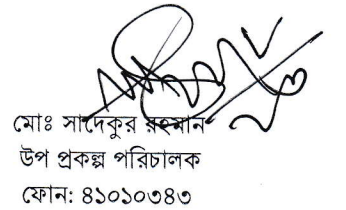 মোঃ সাদেকুর রহমান
উপ প্রকল্প পরিচালক
ফোন: ৪১০১০৩৪৩